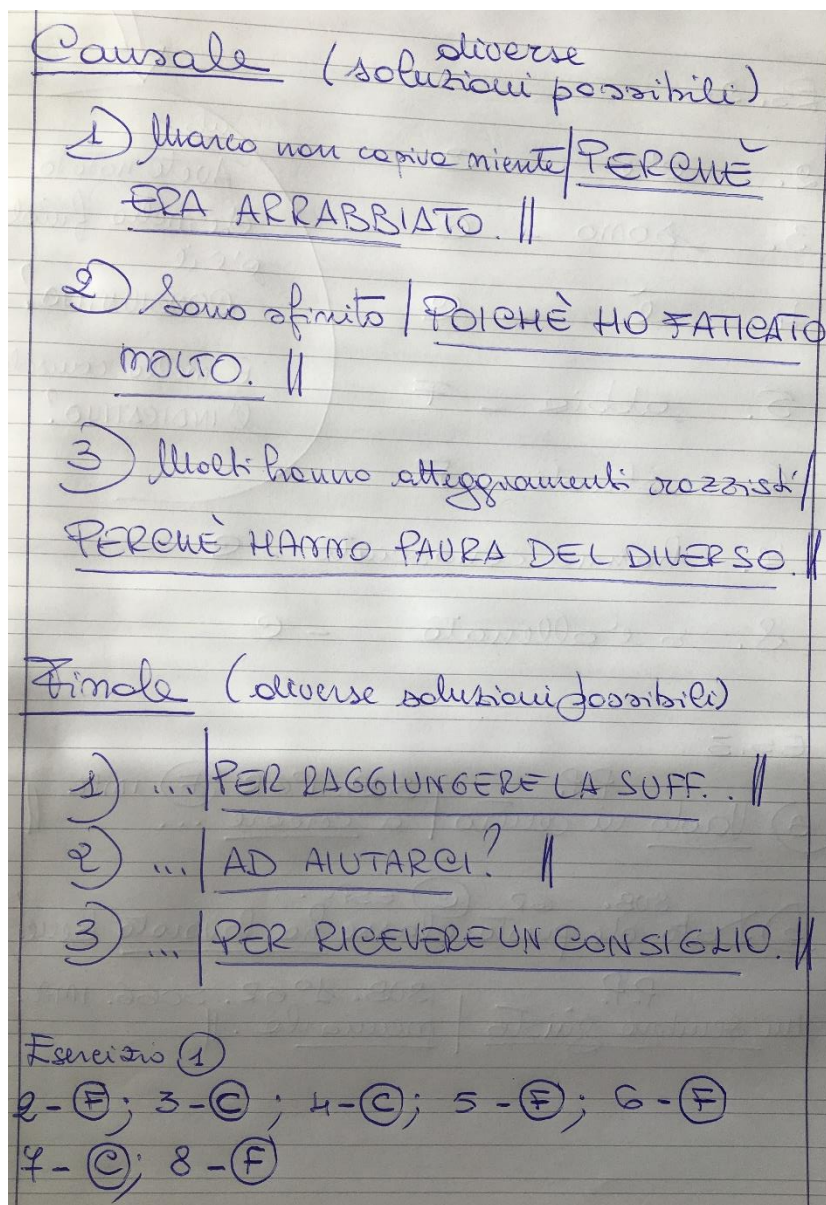 Causale (diverse
soluzioni possibili)
1) Marco non capiva niente | PERCHÈ
ERA ARRABBIATO. ||
2) Sono sfinito | POICHÈ HO FATICATO
MOLTO. ||
3) Molti hanno atteggiamenti razzisti |
PERCHÈ HANNO PAURA DEL DIVERSO. ||
Finale (diverse soluzioni possibili)
1) ... | PER RAGGIUNGERE LA SUFF. . ||
2) ... | AD AIUTARCI? ||
3) ... | PER RICEVERE UN CONSIGLIO. ||
Esercizio 1
2 - F; 3 - C; 4 - C; 5 - F; 6 - F
7 - C; 8 - F